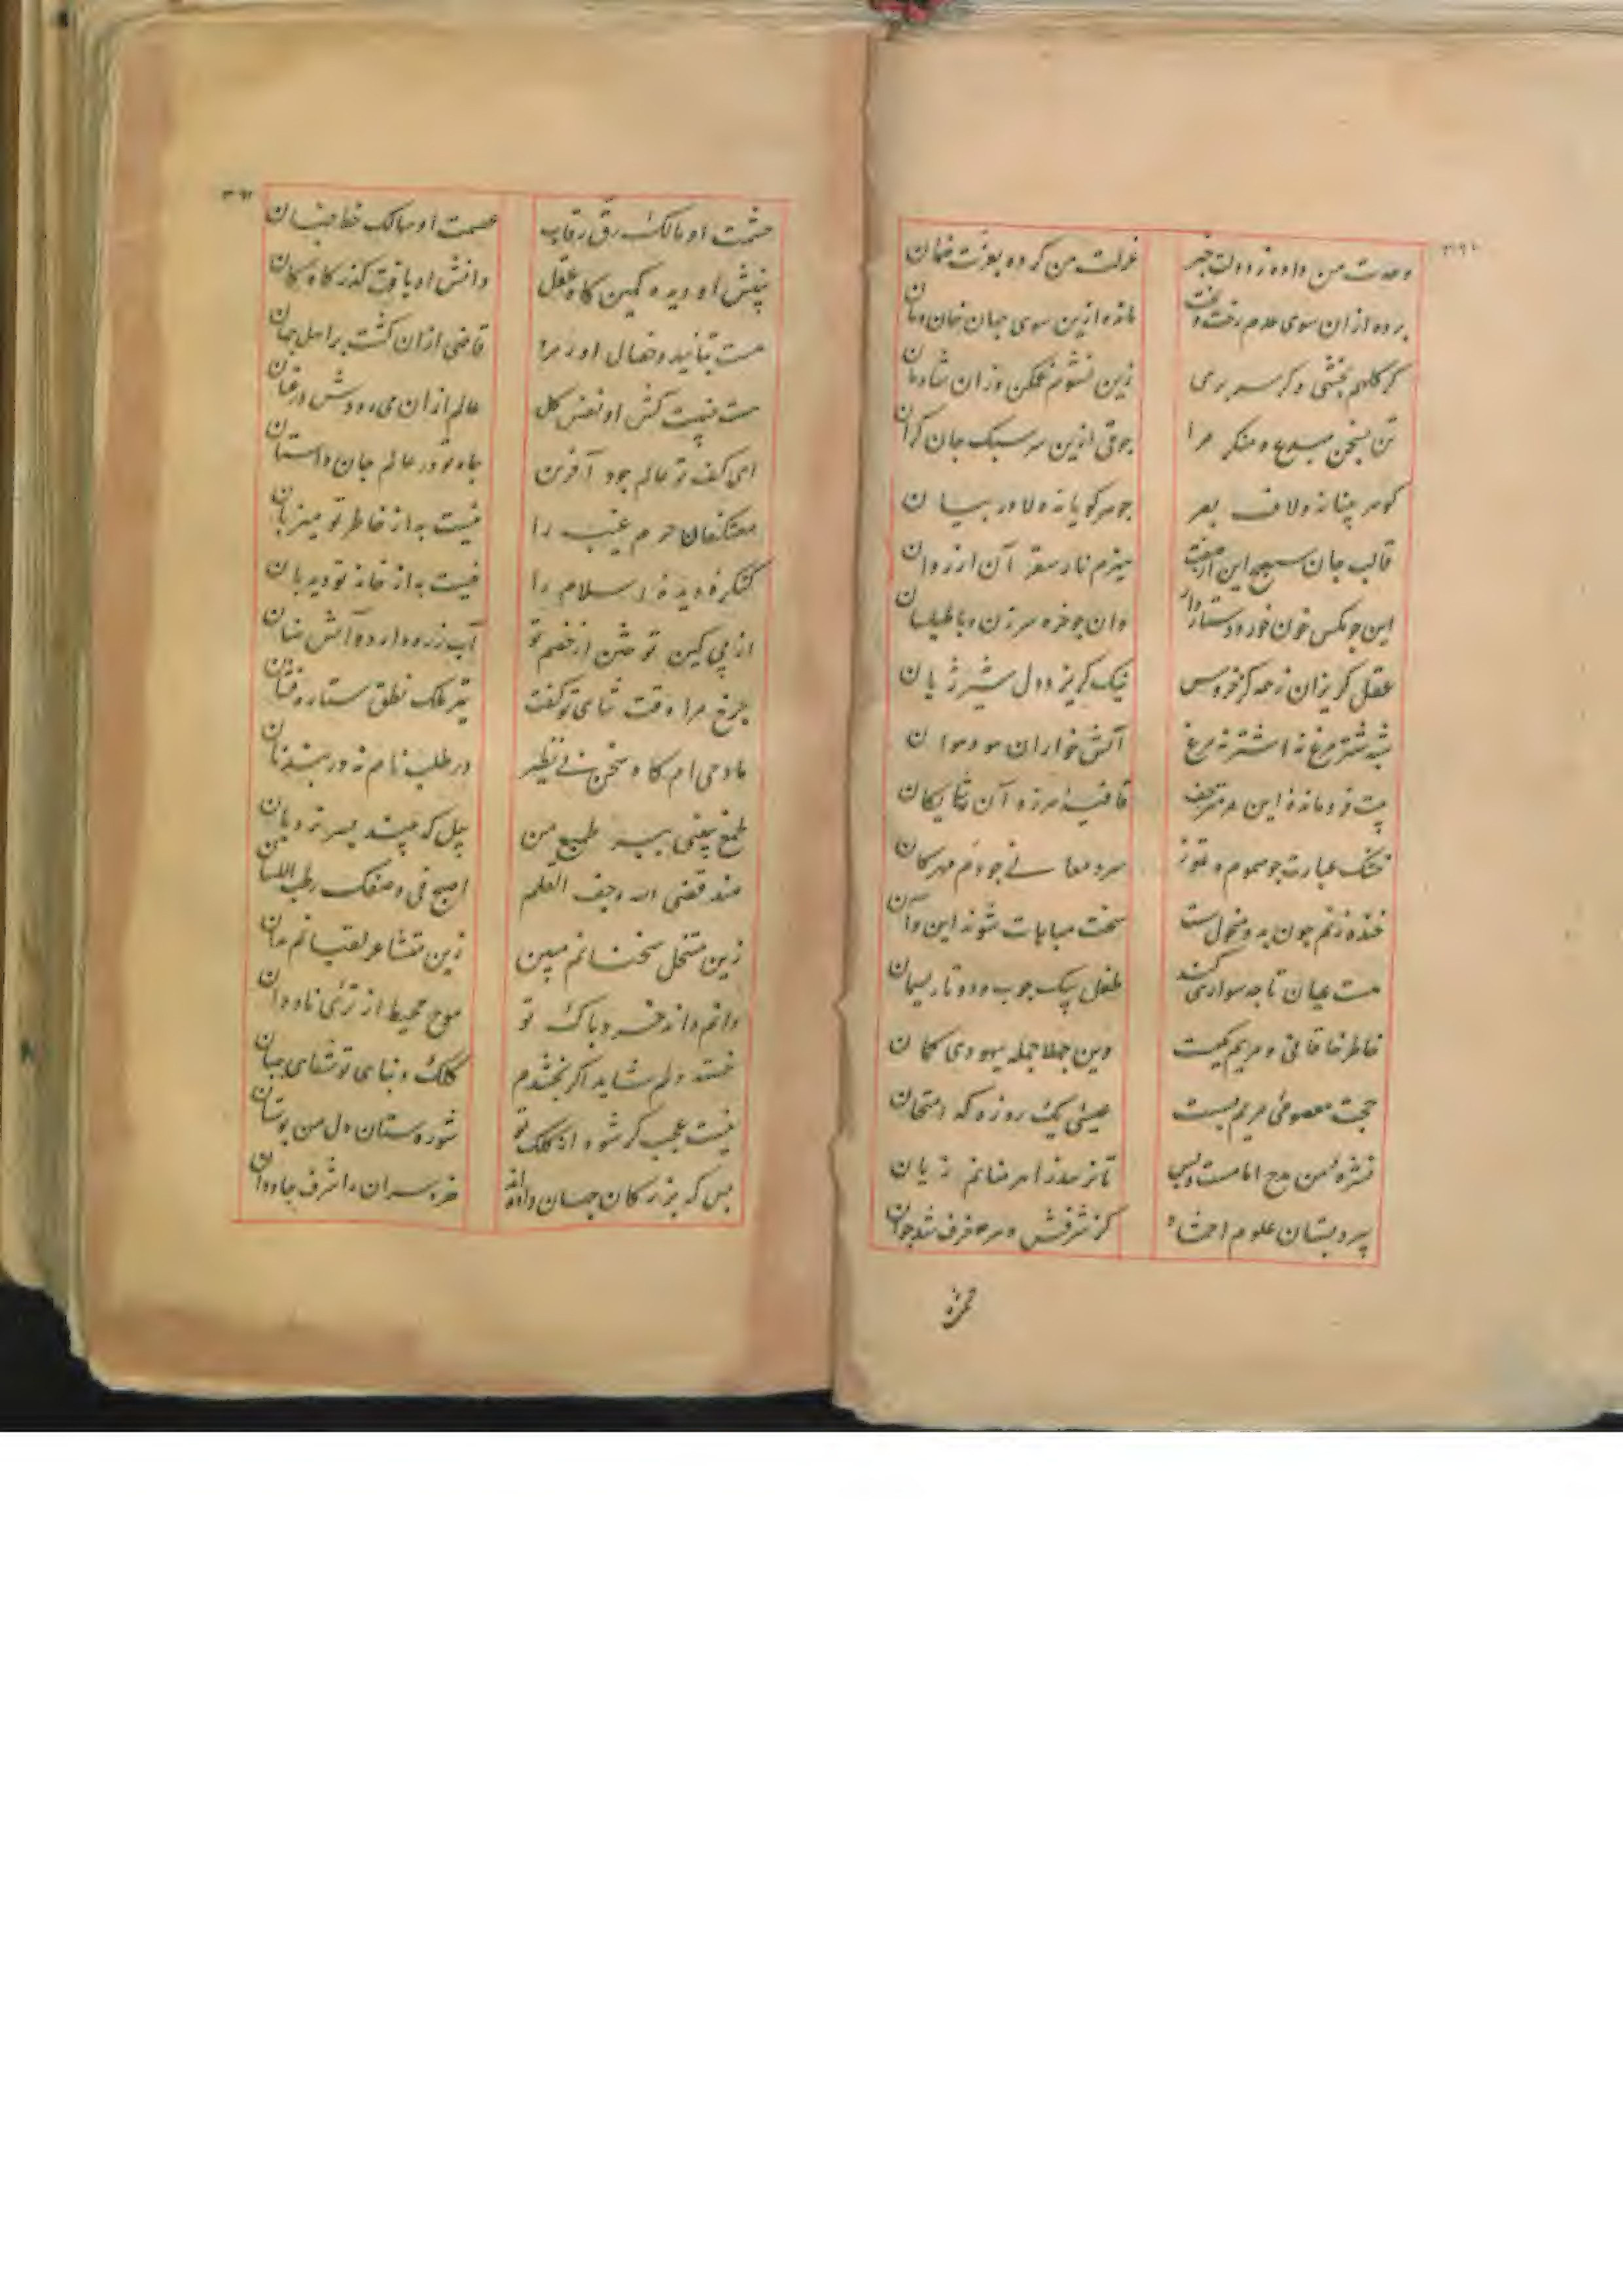 ۳۹۱
وحدت من داده ز دولت خبر عزلت من کرده بعزت ضمان
برده ازان سوی عدم رخت و بخت مانده ازین سوی جهان خان و مان
گر کلهم بخشی و گر سر بری زین نشوم غمگن وزان شادمان
تن بسخن مبدع و منکر مرا جوقی ازین سر سبک جان گران
بصر جوهر گویا نه ولا در بیان
قالب جان این هیزم نار سقر آن از روان
این چو مگس خون خور و دستار دار وان چو خره سرزن و با طیلسان
عقل گریزان ز همه کز خروس نیک گریزد دل شیر ژیان
شبه شتر مرغ نه اشتر نه مرغ آتش خواران هوا و هوان
فرومانده این قافیه هرزه آن شایگان
خشک عبارت چو سموم تموز سرد معانی چو دم مهرکان
خنده زنم چون سخت مباهات شوند این و آن
هست عیان تا چه سواری کند طفل بیک چوب و دو تا ریسمان
خاطر خاقانی و مریم یکیست وین جهلا جمله یهودی کمان
حجت معصومی مریم بست عیسی یک روزه که امتحان
نشره من مدح امامست و بس تا نرسد ز اهرمنانم زیان
پیر دبستان علوم اخشاد کز شرفش دهر خرف شد جوان
حمزه
۳۹۲
حشمت او مالک رق رقاب عصمت او سالک خط جنان
بینش او دیده کمین کاه عقل دانش او یافت گذرگاه کان
هست بتأیید و خصال اورمزد قاضی ازان گشت بر اهل جهان
هست نفس کل عالم ازان می رودش در عنان
ای کف تو عالم جود آفرین جاه تو در عالم جان داستان
معتکفان حرم غیب را نیست به از خاطر تو میزبان
کنگره دیده اسلام را نیست به از خانه تو دیدبان
از پی کین توختن از خصم تو آب زره دارد و آتش سنان
چرخ مرا وقت ثنای تو گفت تیر فلک نطق ستاره فشان
مادحی ام گاه سخن بی نظیر در طلب نام نه در بند نان
طبع من پیل که بیند پسر نردبان
منذ قضی الله وجف القلم اصبح فی وصفک رطب اللسان
زین متنحل سخنانم مبین زین متشاعر لقبانم مدان
دانم داند خرد پاک تو موج محیط از ترئی ناودان
خسته دلم شاید اگر بخشدم کلک و بنای تو شفای جنان
نیست عجب گر شود از کلک تو شوره ستان دل من بوستان
بس که بزرگان جهان داده اند خرد سران را شرف جاودان